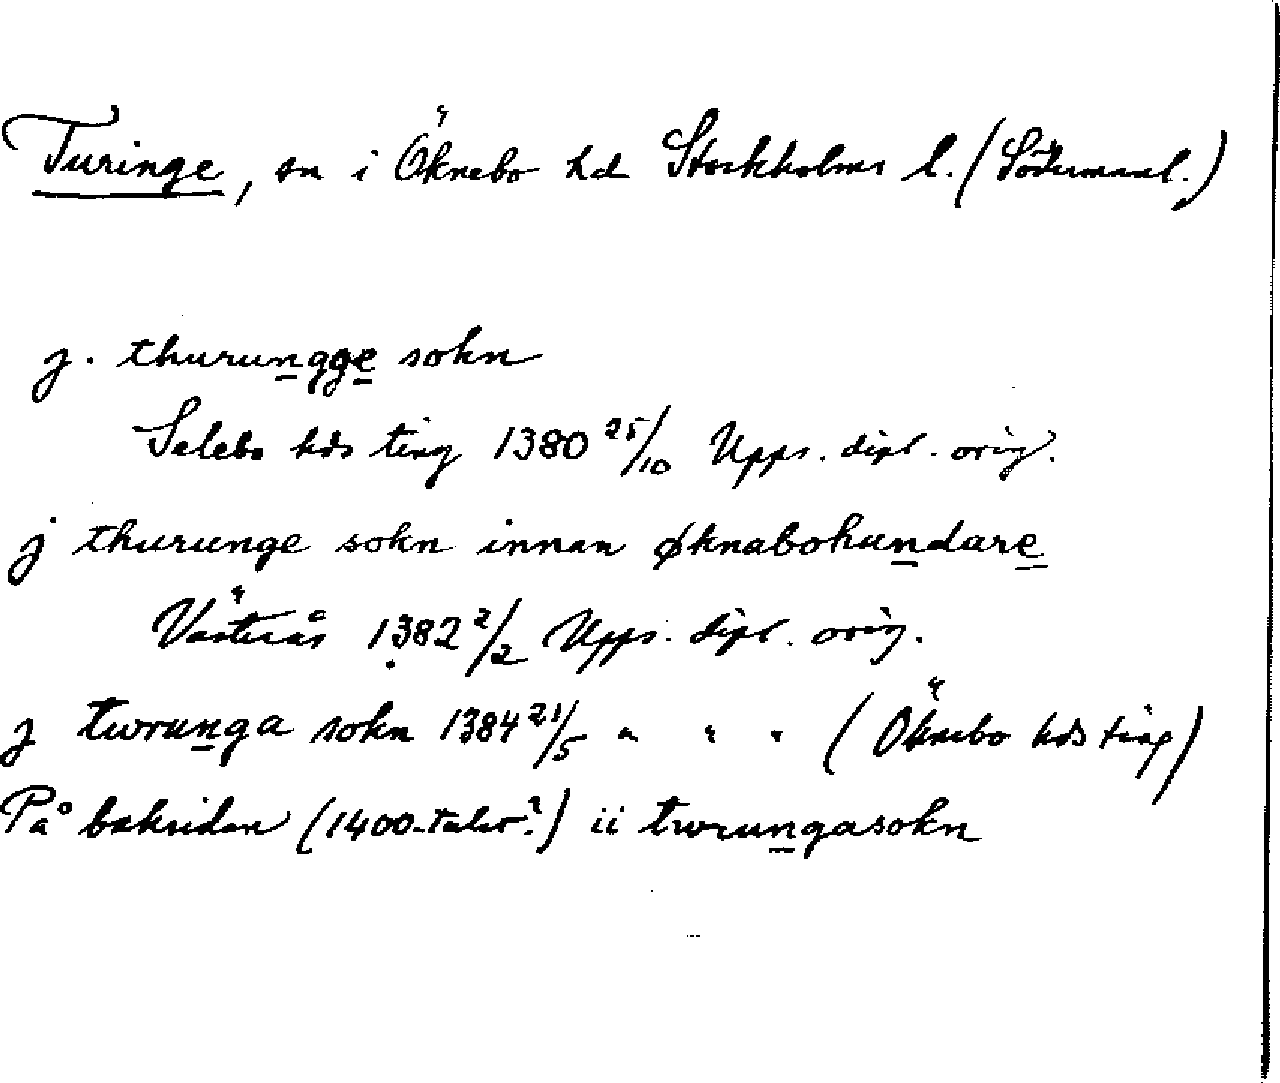 Turinge, sn i Öknebo hd Stockholms l. (Södermanl.)
j. thurungge sokn
Selebo hds ting 1380 25/10 Upps. dipl. orig.
j thurunge sokn innan øknabohundare
Västerås 1382 2/2 Upps. dipl. orig.
j twrunga sokn 1384 21/5 " " " (Öknebo hds ting)
På baksidan (1400-talet?) ii twrungasokn